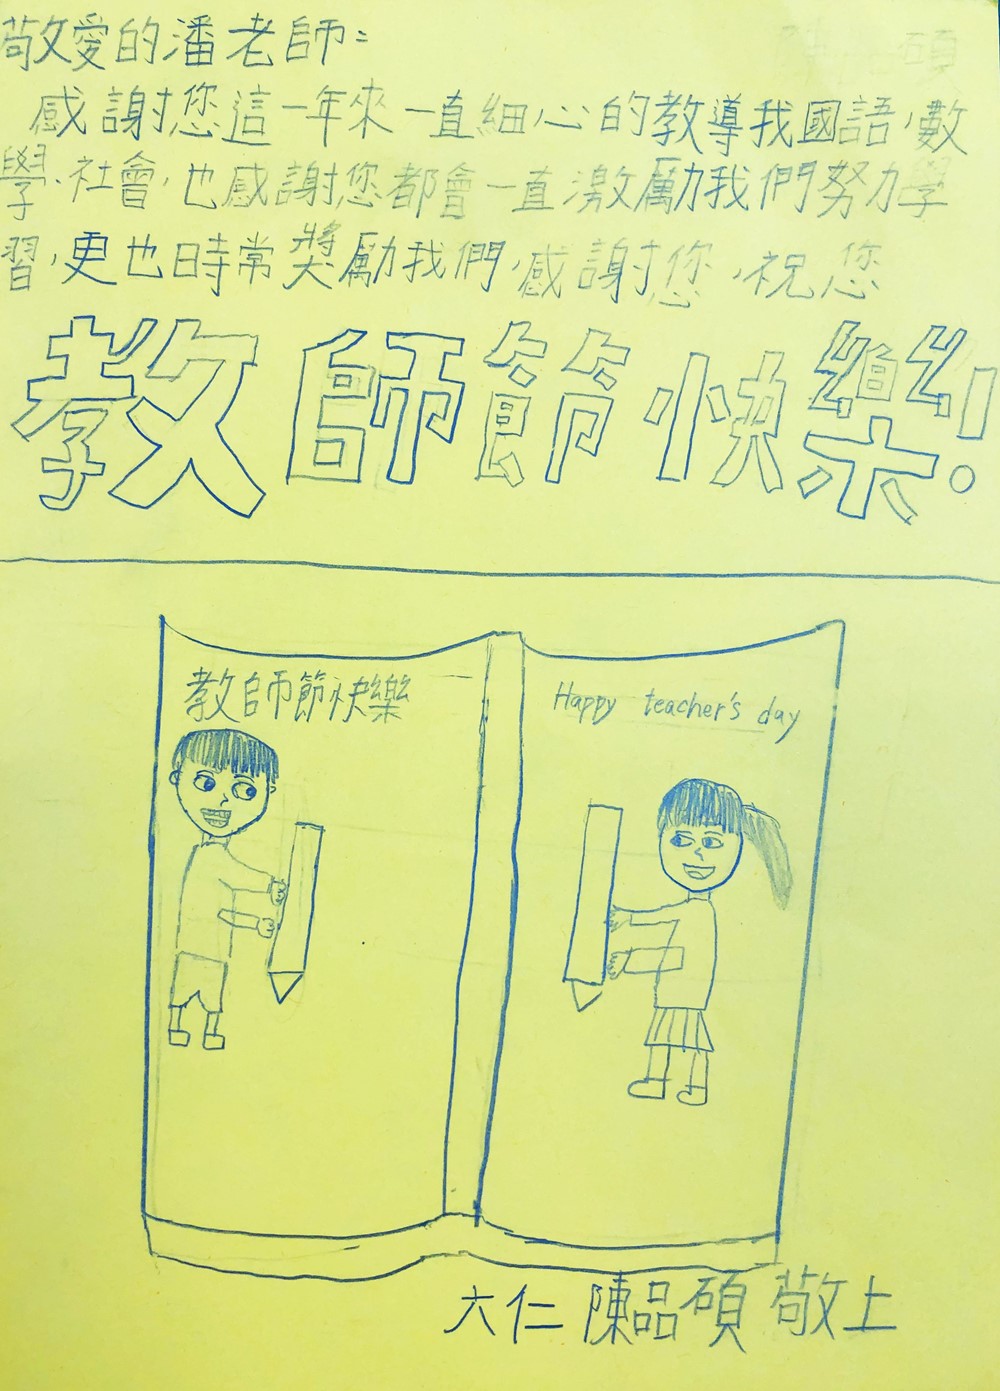 敬愛的潘老師：
感謝您這一年來一直細心的教導我國語，數
學、社會，也感謝您都會一直激勵我們努力學
習，更也時常獎勵我們，感謝您，祝您
教師節快樂！
教師節快樂
Happy teacher's day
六仁 陳品碩 敬上